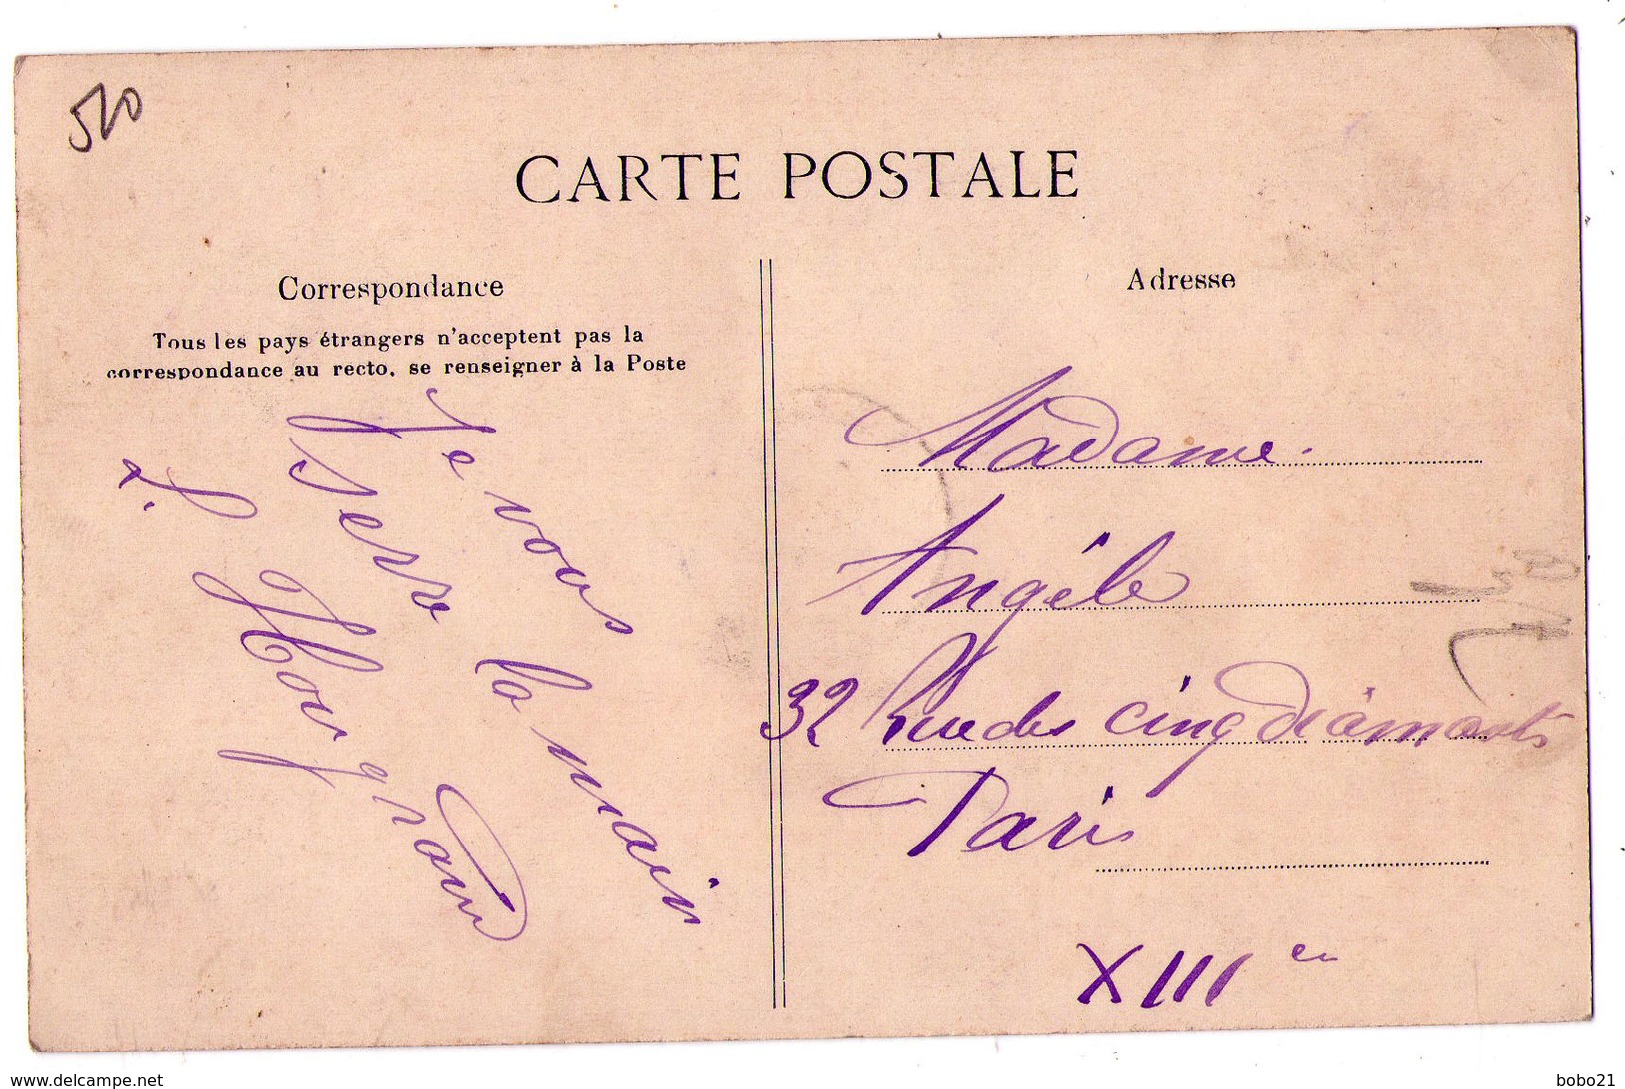 510
CARTE POSTALE
Correspondance
Tous les pays étrangers n'acceptent pas la
correspondance au recto, se renseigner à la Poste
Je vous
serre la main
Adresse
Madame
Angèle
32 Rue des cinq diamants
Paris
XIIIe
www.delcampe.net
bobo21